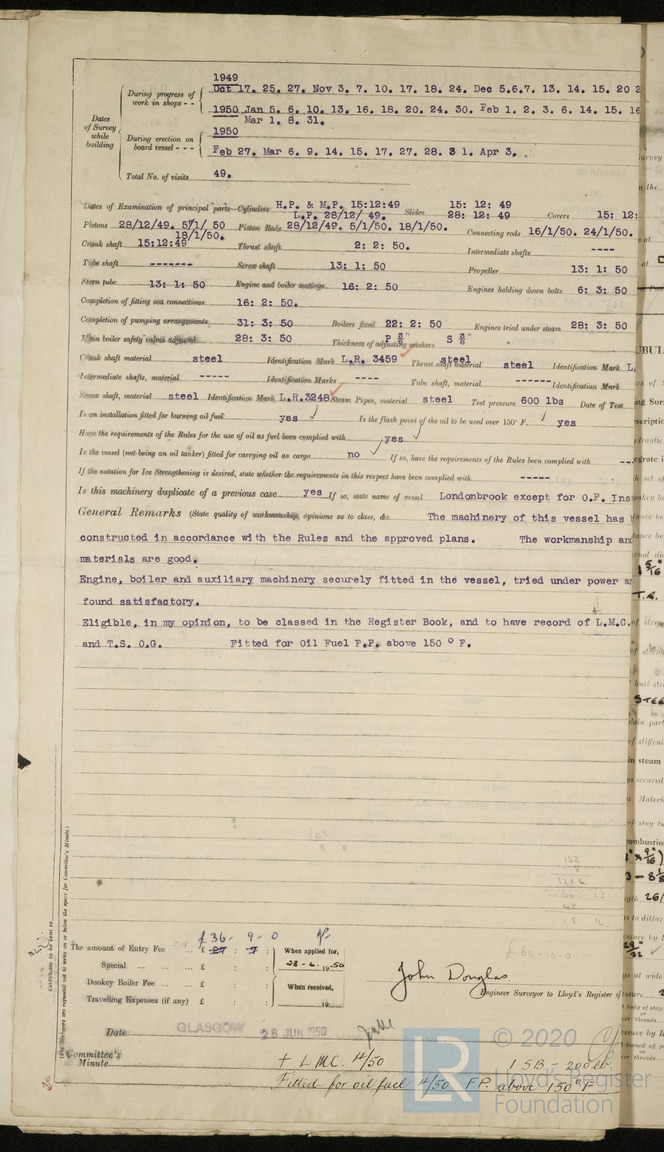 1949
During progress of work in shops - - Oct 17. 25. 27. Nov 3. 7. 10. 17. 18. 24. Dec 5.6.7. 13. 14. 15. 20 2
1950 Jan 5. 6. 10. 13. 16. 18. 20. 24. 30. Feb 1. 2. 3. 6. 14. 15. 16
Mar 1. 8. 31.
Dates of Survey while building
1950
During erection on board vessel - - - Feb 27. Mar 6. 9. 14. 15. 17. 27. 28. 3 1. Apr 3.
Total No. of visits 49.
Dates of Examination of principal parts—Cylinders H.P. & M.P. 15:12:49 Slides 15: 12: 49 Covers 15: 12:
L.P. 28/12/ 49. 28: 12: 49
Pistons 28/12/49. 5/1/ 50 Piston Rods 28/12/49. 5/1/50. 18/1/50. Connecting rods 16/1/50. 24/1/50.
18/1/50.
Crank shaft 15:12:49 Thrust shaft 2: 2: 50. Intermediate shafts ----
Tube shaft ------- Screw shaft 13: 1: 50 Propeller 13: 1: 50
Stern tube 13: 1: 50 Engine and boiler seatings 16: 2: 50 Engines holding down bolts 6: 3: 50
Completion of fitting sea connections 16: 2: 50.
Completion of pumping arrangements 31: 3: 50 Boilers fixed 22: 2: 50 Engines tried under steam 28: 3: 50
Main boiler safety valves adjusted 28: 3: 50 Thickness of adjusting washers P 3/8" S 3/8"
Crank shaft material steel Identification Mark L.R. 3459 Thrust shaft material steel steel Identification Mark L.
Intermediate shafts, material ----- Identification Marks ---- Tube shaft, material ------ Identification Mark
Screw shaft, material steel Identification Mark L.R.3248 Steam Pipes, material steel Test pressure 600 lbs Date of Test
Is an installation fitted for burning oil fuel yes Is the flash point of the oil to be used over 150° F. yes
Have the requirements of the Rules for the use of oil as fuel been complied with yes
Is the vessel (not being an oil tanker) fitted for carrying oil as cargo no If so, have the requirements of the Rules been complied with
If the notation for Ice Strengthening is desired, state whether the requirements in this respect have been complied with -----
Is this machinery duplicate of a previous case yes If so, state name of vessel Londonbrook except for O.F. Ins
General Remarks (State quality of workmanship, opinions as to class, &c. The machinery of this vessel has
constructed in accordance with the Rules and the approved plans. The workmanship an
materials are good.
Engine, boiler and auxiliary machinery securely fitted in the vessel, tried under power a
found satisfactory.
Eligible, in my opinion, to be classed in the Register Book, and to have record of L.M.C.
and T.S. O.G. Fitted for Oil Fuel F.P. above 150 ° F.
£36 - 9 - 0
The amount of Entry Fee ... £ 27 : 7 : When applied for,
Special ... ... ... £ : : 28-6-1950
Donkey Boiler Fee ... £ : : When received,
Travelling Expenses (if any) £ : : 19
John Douglas
Engineer Surveyor to Lloyd's Register of
Date GLASGOW 28 JUN 1950
Committee's Minute + LMC. 4/50 1 SB - 200 lb.
Fitted for oil fuel 4/50 F.P. above 150°F
(The Surveyors are requested not to write on or below the space for Committee's Minute.)
Certificate to be sent to
© 2020
LR
Lloyd's Register
Foundation